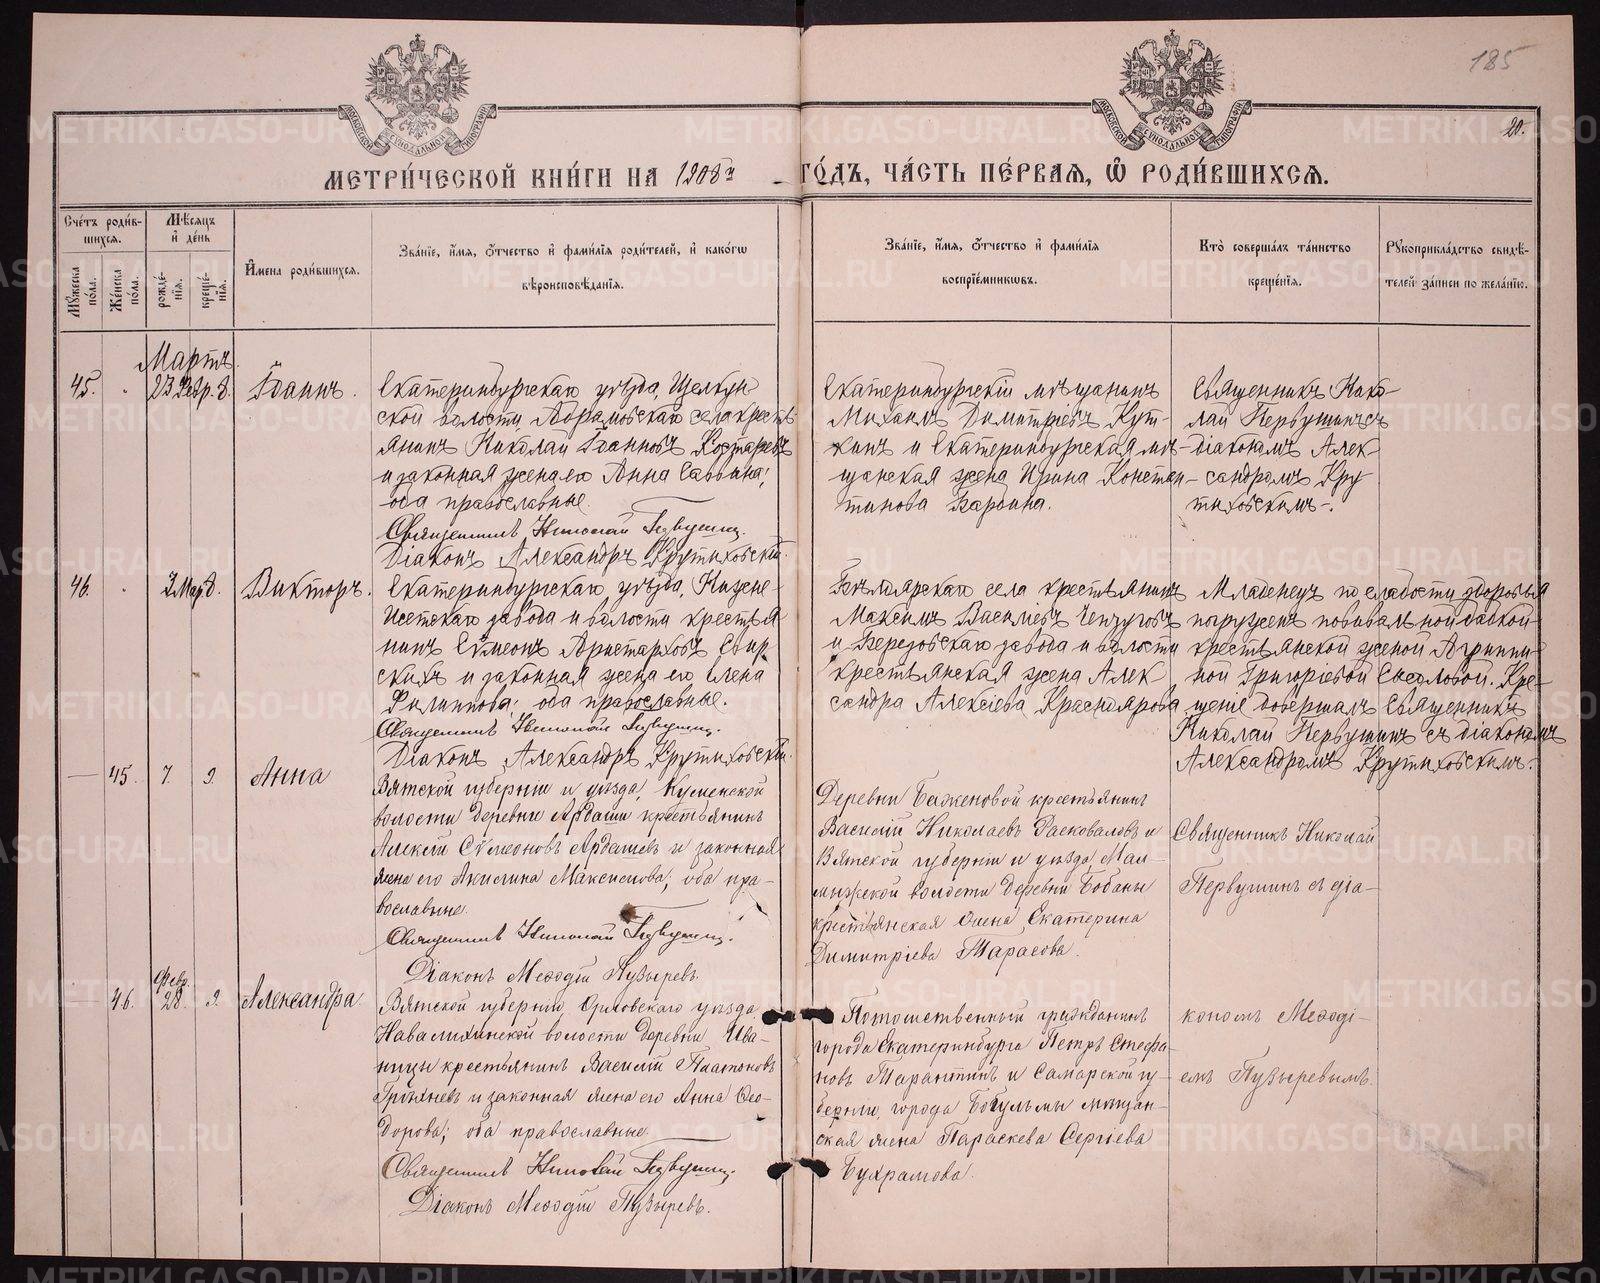 185
20.
МОСКОВСКОЙ СѴНОДАЛЬНОЙ ТИПОГРАФІИ
МОСКОВСКОЙ СѴНОДАЛЬНОЙ ТИПОГРАФІИ
МЕТРИ́ЧЕСКОЙ КНИ́ГИ НА 1908й ГО́ДЪ, ЧА́СТЬ ПЕ́РВАЯ, Ѽ РОДИ́ВШИХСЯ.
Сче́тъ роди́в-
шихся.
Мꙋ́жеска по́ла.
Же́нска по́ла.
Мѣ́сяцъ
и҆ де́нь
рожде́-
нїя.
креще́-
нїя.
И҆́мена роди́вшихся.
Зва́нїе, и҆́мя, ѻ҆́тчество и҆ фами́лїя роди́телей, и҆ како́гѡ
вѣроисповѣ́данїя.
Зва́нїе, и҆́мя, ѻ҆́тчество и҆ фами́лїя
воспрїе́мникѡвъ.
Кто̀ соверша́лъ та́инство
креще́нїя.
Рꙋкоприкла́дство свидѣ́-
телей за́писи по жела́нїю.
Мартъ.
45. " 23 Февр. 8. Іоаннъ.
Екатеринбургскаго уѣзда, Щелкун
ской волости, Абрамовскаго села кресть
янинъ Николай Іоанновъ Костаревъ
и законная жена его Анна Саввина;
оба православные.
Священникъ Николай Первушинъ.
Діаконъ Александръ Крутиховскій.
Екатеринбургскій мѣщанинъ
Михаилъ Димитріевъ Кут-
кинъ и Екатеринбургская мѣ-
щанская жена Ирина Констан-
тинова
Священникъ Нико-
лай Первушинъ съ
діакономъ Алек-
сандромъ Кру
тиховскимъ.
46. " 2 Мар. 8. Викторъ.
Екатеринбургскаго уѣзда, Нижне-
Исетскаго завода и волости крестья
нинъ Сѵмеонъ Аристарховъ Свир
скихъ и законная жена его Елена
Филиппова; оба православные.
Священникъ Николай Первушинъ.
Діаконъ Александръ Крутиховскій.
села крестьянинъ
Максимъ Васильевъ Чепчуговъ
и Березовскаго завода и волости
крестьянская жена Алек
сандра Алексіева Красноярова
Младенецъ по слабости здоровья
погруженъ повивальной бабкой
крестьянской женой Агриппи
ной Григоріевой Кре-
щеніе довершалъ Священникъ
Николай Первушинъ съ діакономъ
Александромъ Крутиховскимъ.
— 45. 7. 9. Анна
Вятской губерніи и уѣзда, Куменской
волости деревни Ардаши крестьянинъ
Алексій Сѵмеоновъ Ардашевъ и законная
жена его Акилина Максимова; оба пра-
вославные.
Священникъ Николай Первушинъ.
Діаконъ Меѳодій Пузыревъ.
Деревни Баженовой крестьянинъ
Василій Николаевъ Расковаловъ и
Вятской губерніи и уѣзда Мал-
мыжской волости деревни Бобаны
крестьянская жена Екатерина
Димитріева Тарасова.
Священникъ Николай
Первушинъ съ діа-
— 46. Февр. 28. 9. Александра.
Вятской губерніи, Орловскаго уѣзда
Навалихинской волости деревни Ива-
ницы крестьянинъ Василій Платоновъ
и законная жена его Анна Ѳео-
дорова; оба православные.
Священникъ Николай Первушинъ.
Діаконъ Меѳодій Пузыревъ.
Потомственный гражданинъ
города Екатеринбурга Петръ Стефа-
новъ Тарантинъ и Самарской гу
берніи, города Бугульмы мѣщан-
ская жена Параскева Сергіева
Бухрамова.
кономъ Меѳоді-
емъ Пузыревымъ.
METRIKI.GASO-URAL.RU